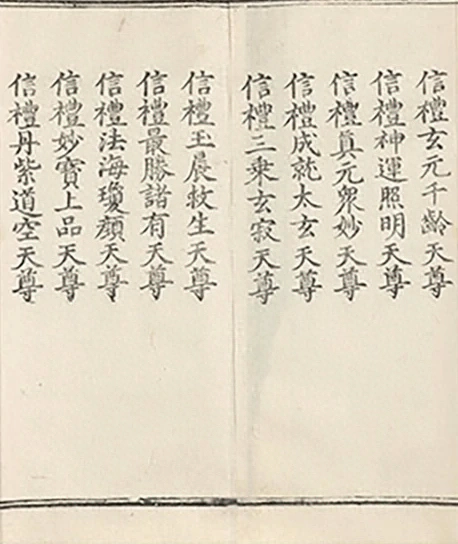 信禮玄元千齡天尊
信禮神運照明天尊
信禮眞元衆妙天尊
信禮成就太玄天尊
信禮三乘玄寂天尊
信禮玉晨救生天尊
信禮最勝諸有天尊
信禮法海瓊顔天尊
信禮妙寶上品天尊
信禮丹紫道空天尊